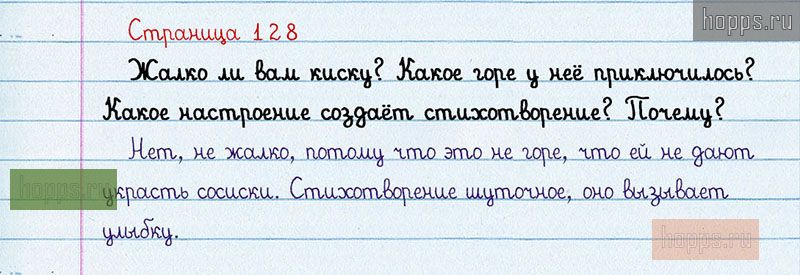 Страница 128
hopps.ru
Жалко ли вам киску? Какое горе у неё приключилось?
Какое настроение создаёт стихотворение? Почему?
Нет, не жалко, потому что это не горе, что ей не дают
hopps.ru
украсть сосиски. Стихотворение шуточное, оно вызывает
улыбку.
hopps.ru